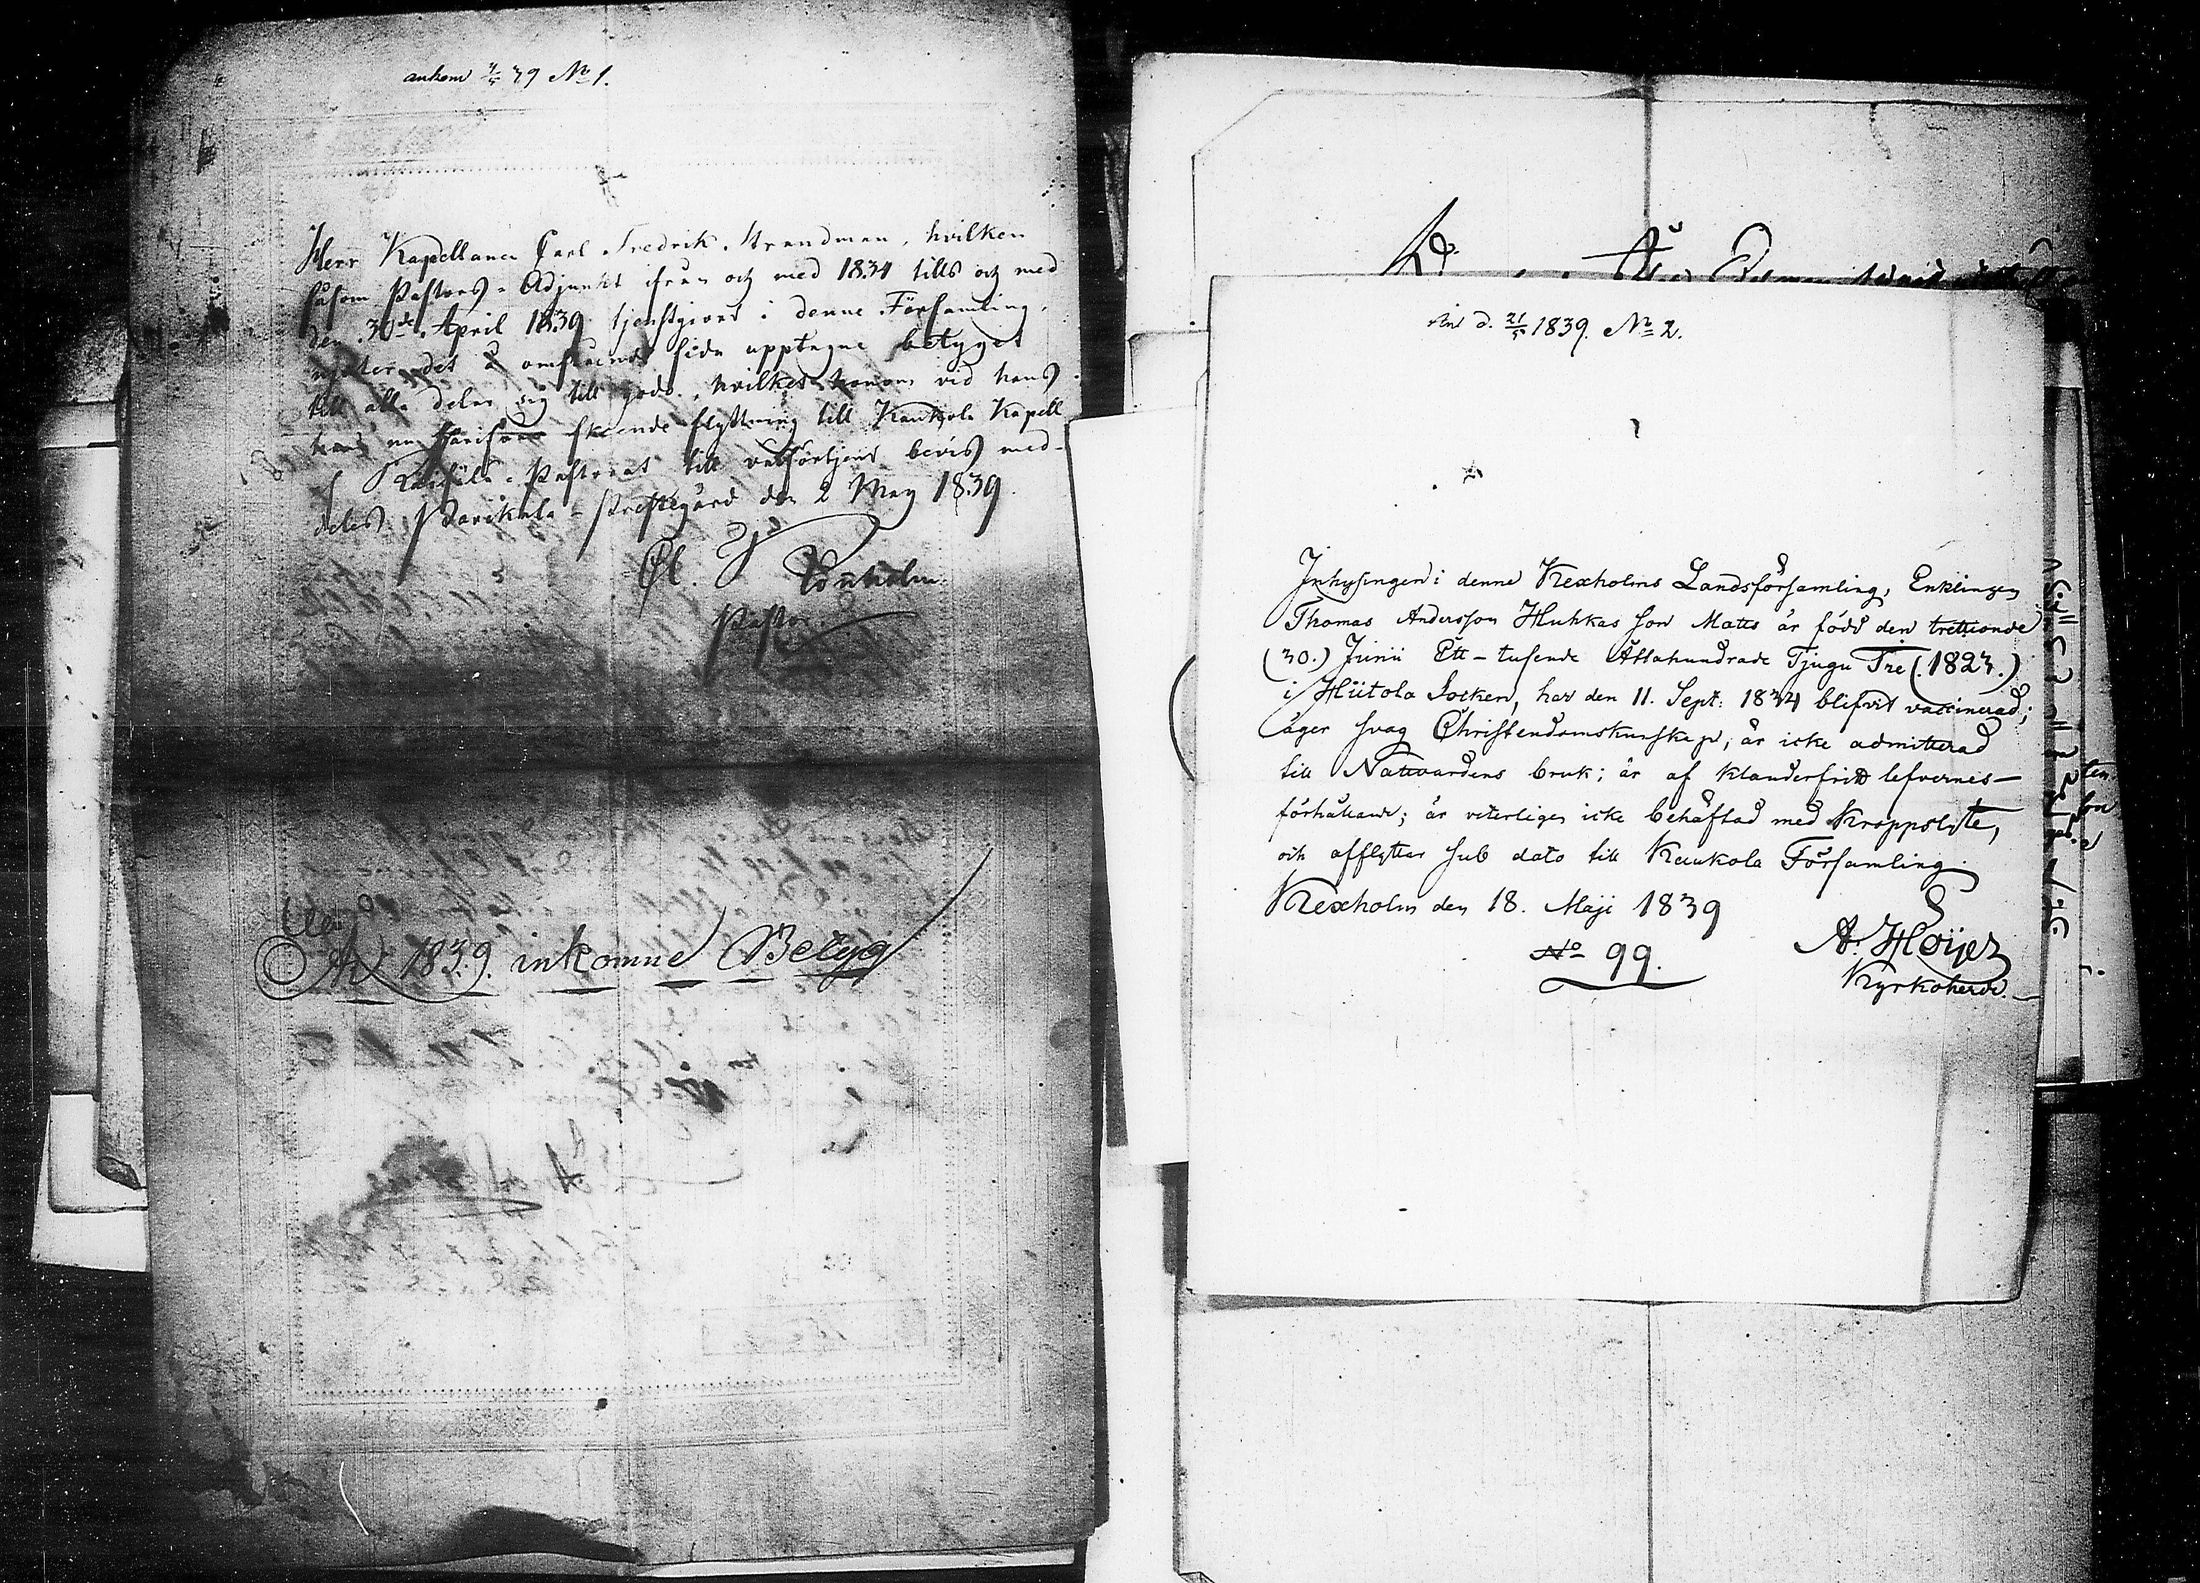 ankom 4/5 39 No 1.
Herr Kapellanen Carl Fredrik Strandman, hvilken
såsom Pastors-Adjunkt ifrån och med 1834 tills och med
den 30de April 1839 tjenstgjort i denne Församling,
njuter det å omstående sida upptagne betyget
till alla delar sig till godo, hvilket honom vid hans
nu härifrån skeende flyttning till Kaukola Kapell
i Räisälä Pastorat till välförtjent bevis med-
delas. Parikkala Prestegård den 2 May 1839.
Pastor.
År 1839 inkomne Betyg
Ank d. 21/5 1839. No 2.
Inhysingen i denne Kexholms Landsförsamling, Enklingen
Thomas Andersson Huhkas son Matts är född den trettionde
(30.) Junii Ett-tusende Åttahundrade Tjugu Tre (1823.)
i Hiitola Socken, har den 11. Sept: 1834 blifvit vaccinerad;
äger svag Christendomskunskap, är icke admitterad
till Nattvardens bruk; är af klanderfritt lefvernes-
förhållande; är veterligen icke behäftad med Kroppslyte,
och afflyttar sub dato till Kaukola Församling.
Kexholm den 18. Maji 1839
No 99.
A. Höijer
Kyrkoherde.